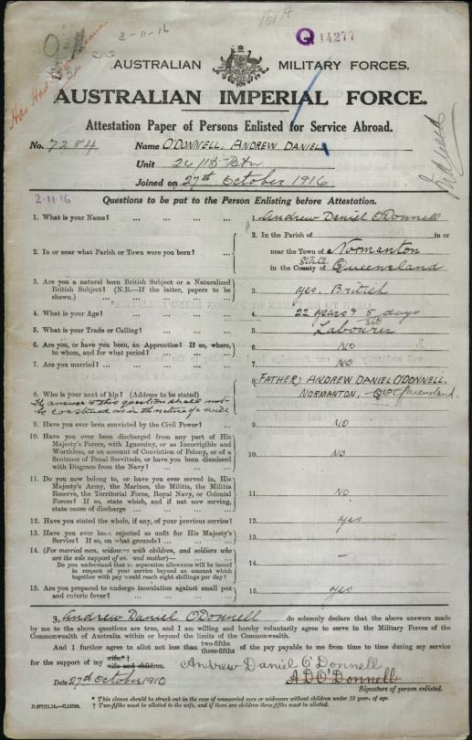 161A
2-11-16
Q 14277
AUSTRALIAN MILITARY FORCES.
AUSTRALIAN IMPERIAL FORCE.
Attestation Paper of Persons Enlisted for Service Abroad.
No. 7284 Name O'DONNELL, ANDREW DANIEL
Unit 26
Joined on 27th October 1916
2-11-16 Questions to be put to the Person Enlisting before Attestation.
1. What is your Name? ... 1. Andrew Daniel O'Donnell
2. In or near what Parish or Town were you born? ... 2. In the Parish of in or
near the Town of Normanton
in the County of STATE Queensland
3. Are you a natural born British Subject or a Naturalized
British Subject? (N.B.—If the latter, papers to be
shown.) ... 3. yes. British
4. What is your Age? ... 4. 22 years 5 days
5. What is your Trade or Calling? ... 5. Labourer
6. Are you, or have you been, an Apprentice? If so, where,
to whom, and for what period? ... 6. NO
7. Are you married? ... 7. NO
8. Who is your next of kin? (Address to be stated) 8. FATHER: ANDREW DANIEL O'DONNELL.
The answer to this question shall not NORMANTON, Queensland.
be construed as in the nature of a will
9. Have you ever been convicted by the Civil Power? ... 9. NO
10. Have you ever been discharged from any part of His
Majesty's Forces, with Ignominy, or as Incorrigible and
Worthless, or on account of Conviction of Felony, or of a
Sentence of Penal Servitude, or have you been dismissed
with Disgrace from the Navy? ... 10. NO
11. Do you now belong to, or have you ever served in, His
Majesty's Army, the Marines, the Militia, the Militia
Reserve, the Territorial Force, Royal Navy, or Colonial
Forces? If so, state which, and if not now serving,
state cause of discharge ... 11. NO
12. Have you stated the whole, if any, of your previous service? 12. yes
13. Have you ever been rejected as unfit for His Majesty's
Service? If so, on what grounds? ... 13.
14. (For married men, widowers with children, and soldiers who
are the sole support of widowed mother)—
Do you understand that no separation allowance will be issued
in respect of your service beyond an amount which
together with pay would reach eight shillings per day? 14. -
15. Are you prepared to undergo inoculation against small pox
and enteric fever? ... 15. yes
I, Andrew Daniel O'Donnell do solemnly declare that the above answers made
by me to the above questions are true, and I am willing and hereby voluntarily agree to serve in the Military Forces of the
Commonwealth of Australia within or beyond the limits of the Commonwealth.
And I further agree to allot not less than two-fifths three-fifths of the pay payable to me from time to time during my service
for the support of my wife* wife and children. Andrew Daniel O'Donnell
Date 27th October 1916 A D O'Donnell
Signature of person enlisted.
* This clause should be struck out in the case of unmarried men or widowers without children under 18 years of age.
† Two-fifths must be allotted to the wife, and if there are children three-fifths must be allotted.